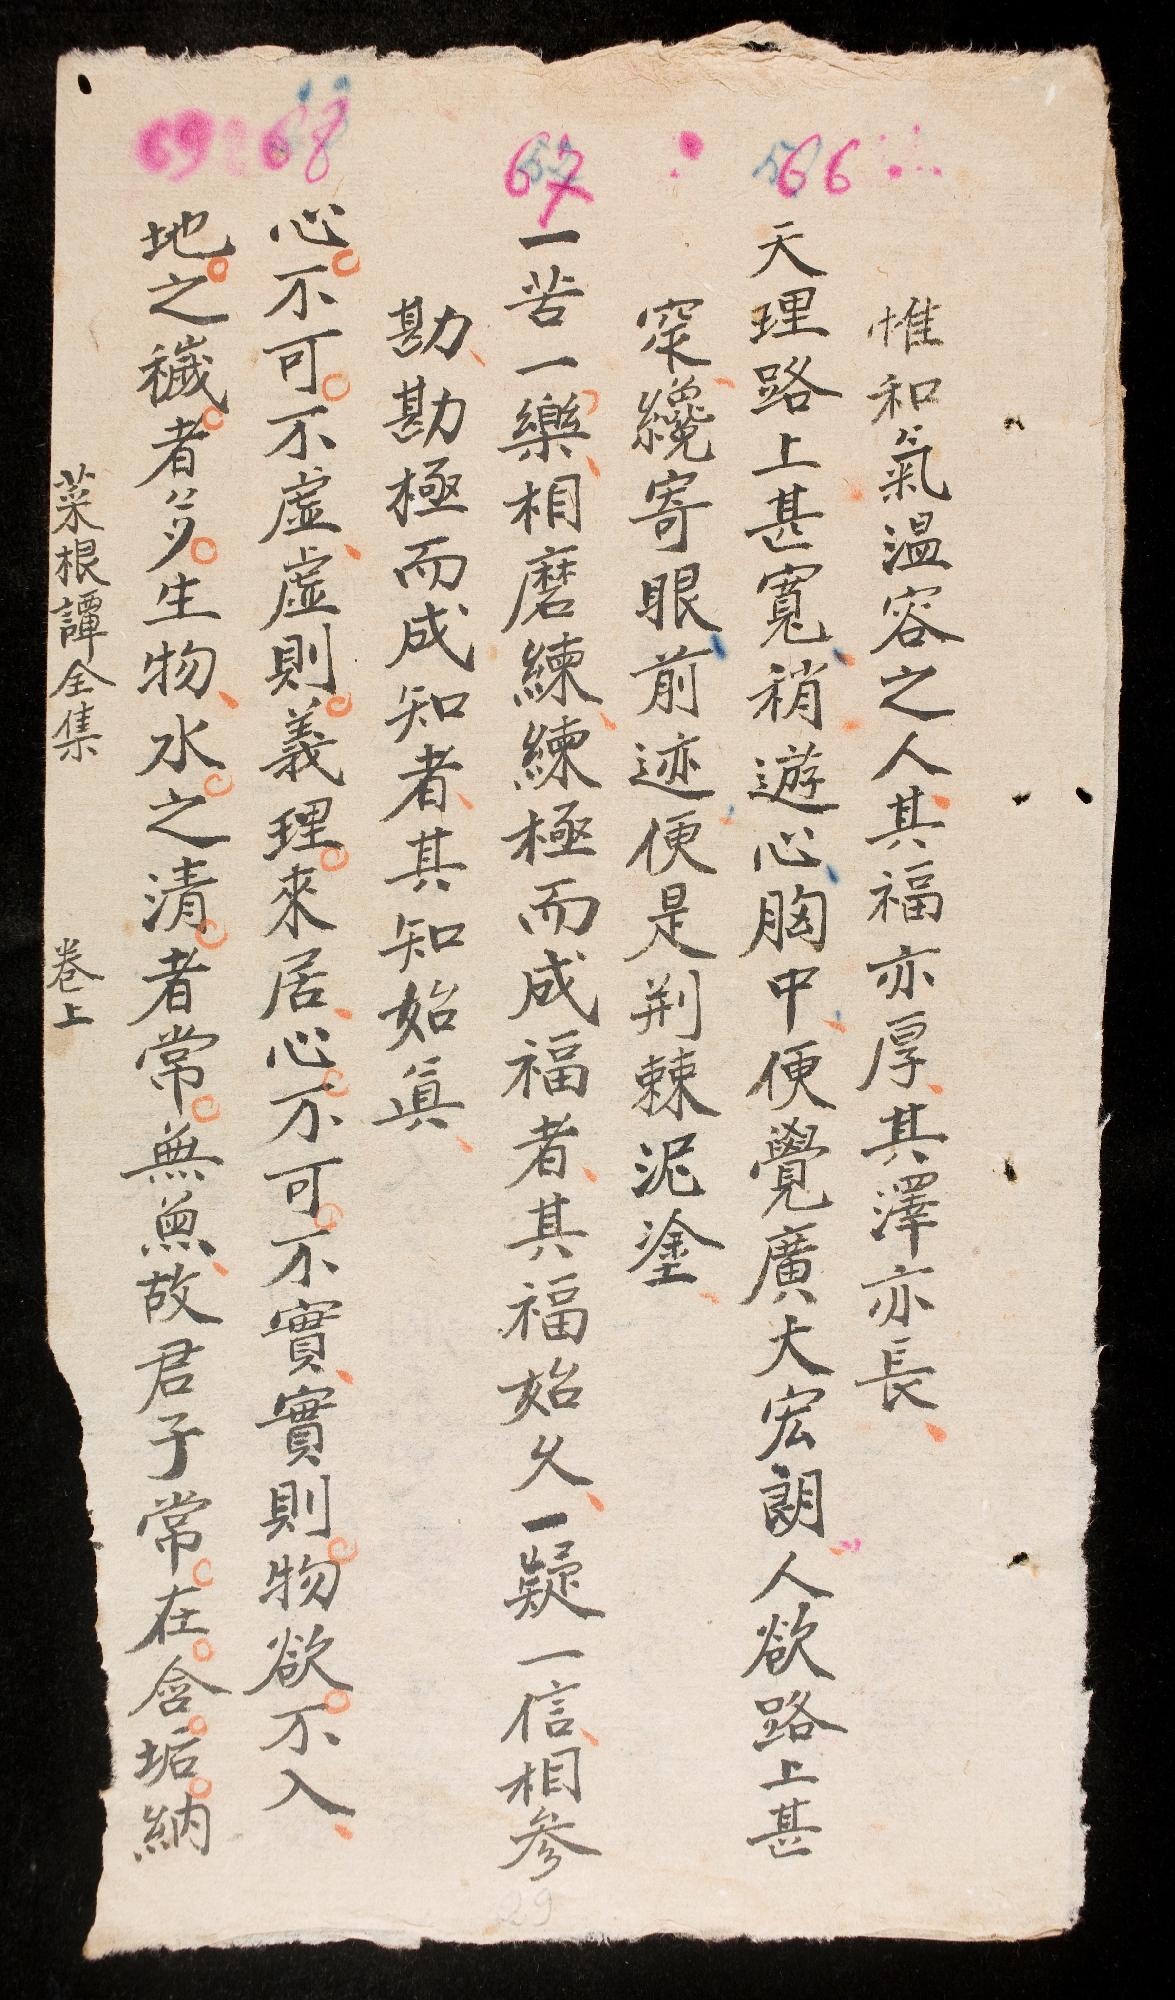 惟和氣温容之人其福亦厚其澤亦長
66
天理路上甚寬稍遊心胸中便覺廣大宏朗人欲路上甚
窄纔寄眼前迹便是荆棘泥塗
67
一苦一樂相磨練練極而成福者其福始久一疑一信相參
勘勘極而成知者其知始眞
68
心不可不虛虛則義理來居心不可不實實則物欲不入
69
地之穢者多生物水之清者常無魚故君子常在含垢納
菜根譚全集 卷上
29